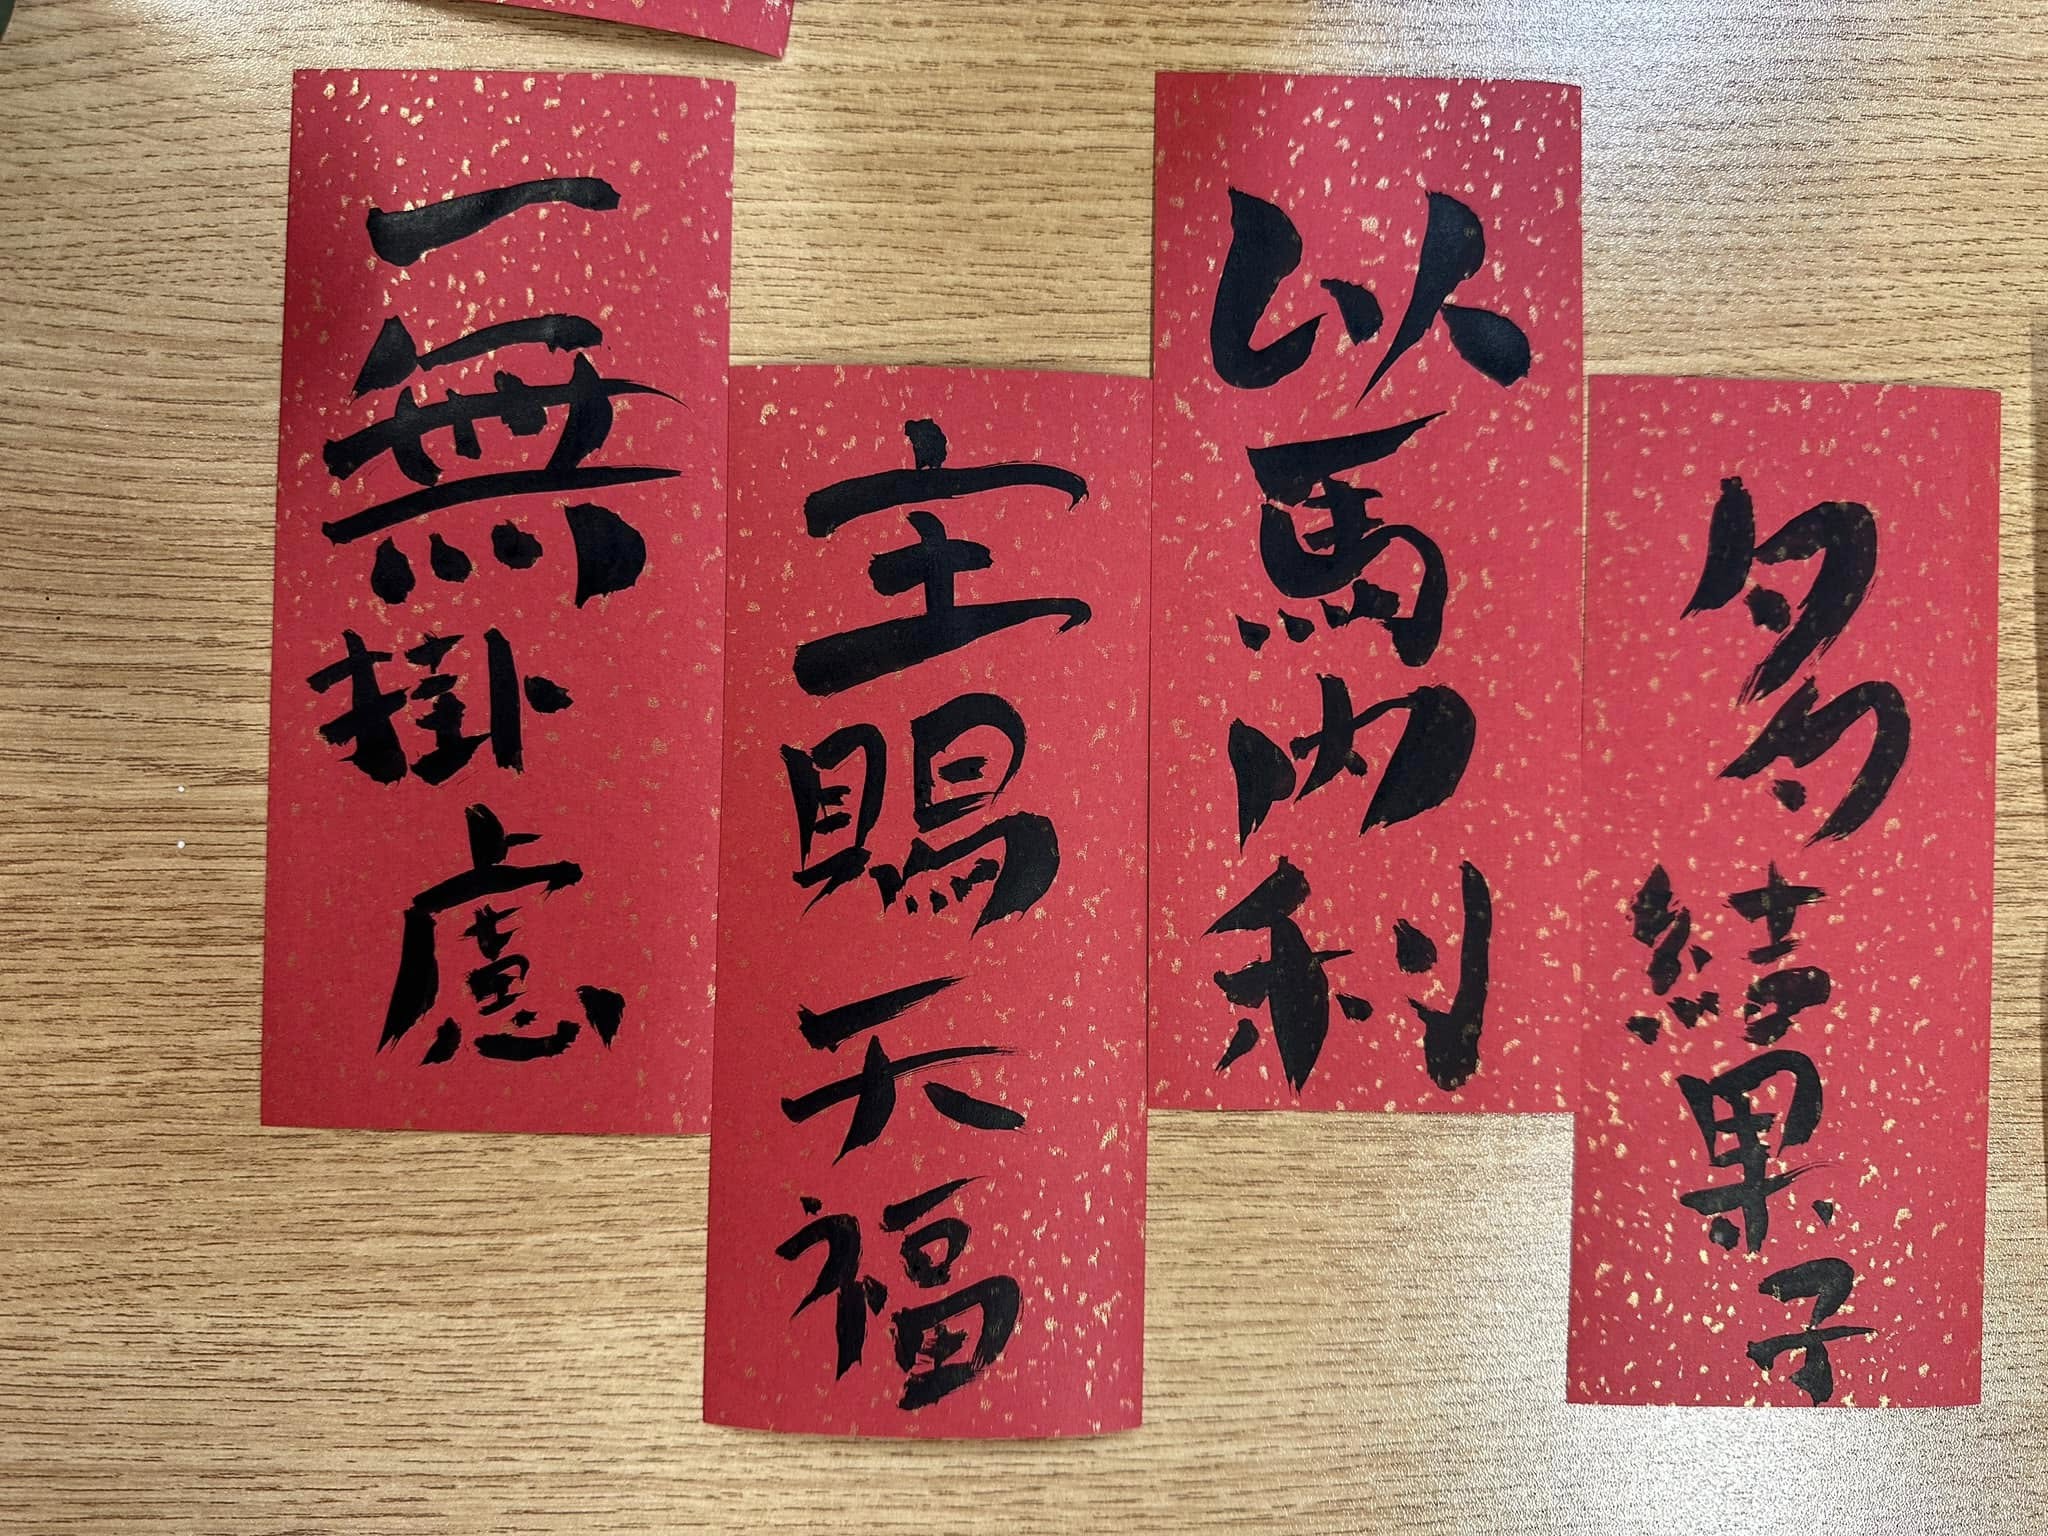 多結果子
以馬內利
主賜天福
一無掛慮